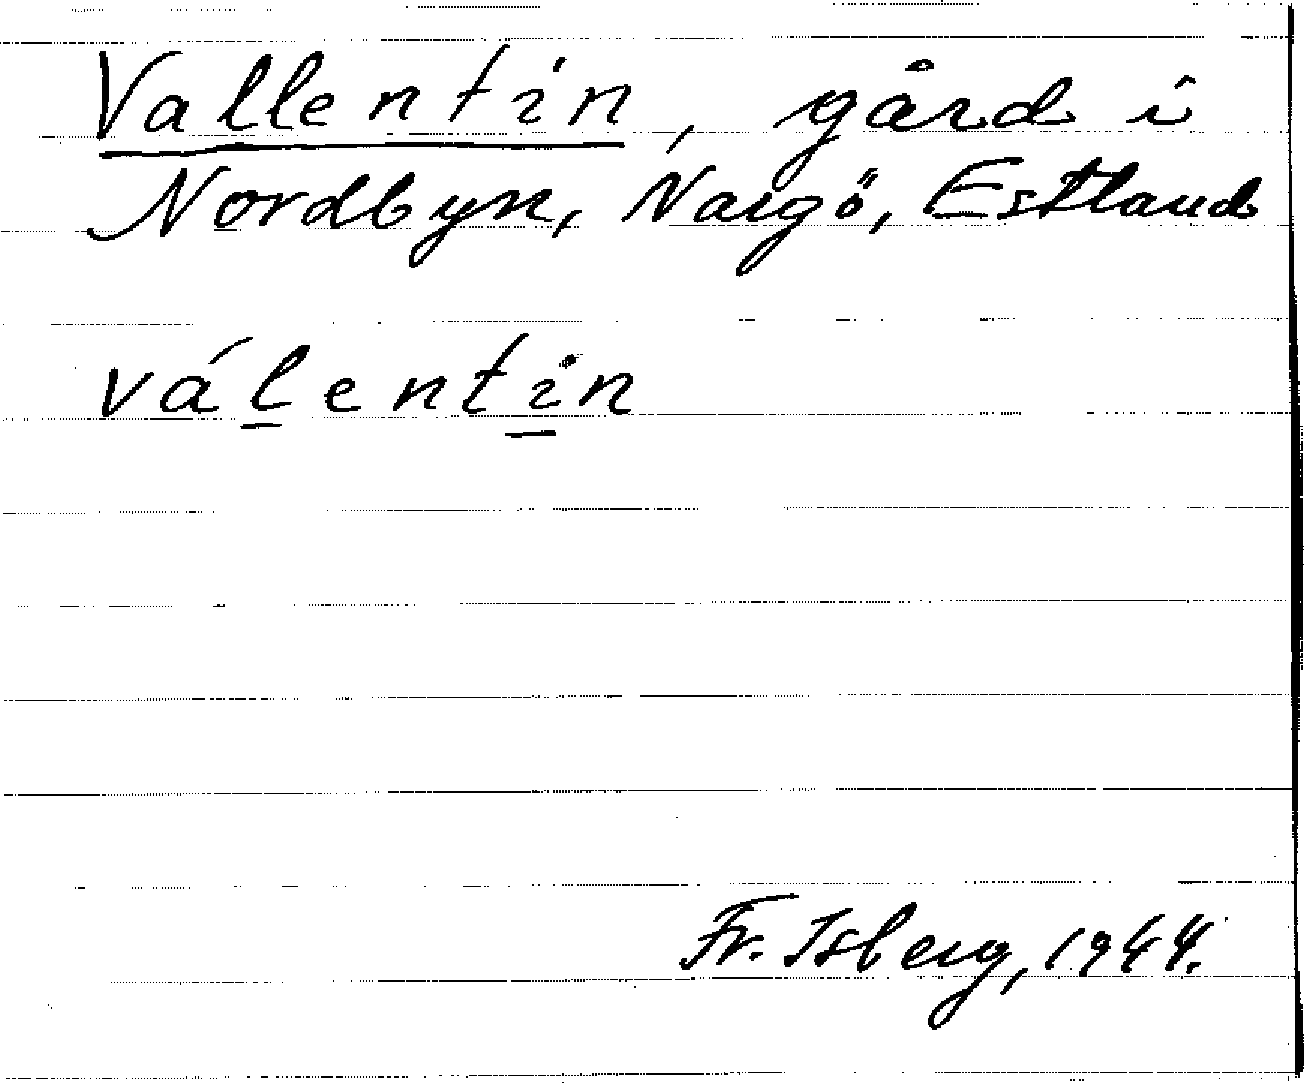 Vallentin, gård i
Nordbyn, Nargö, Estland
válentin
Fr. Isberg, 1944.